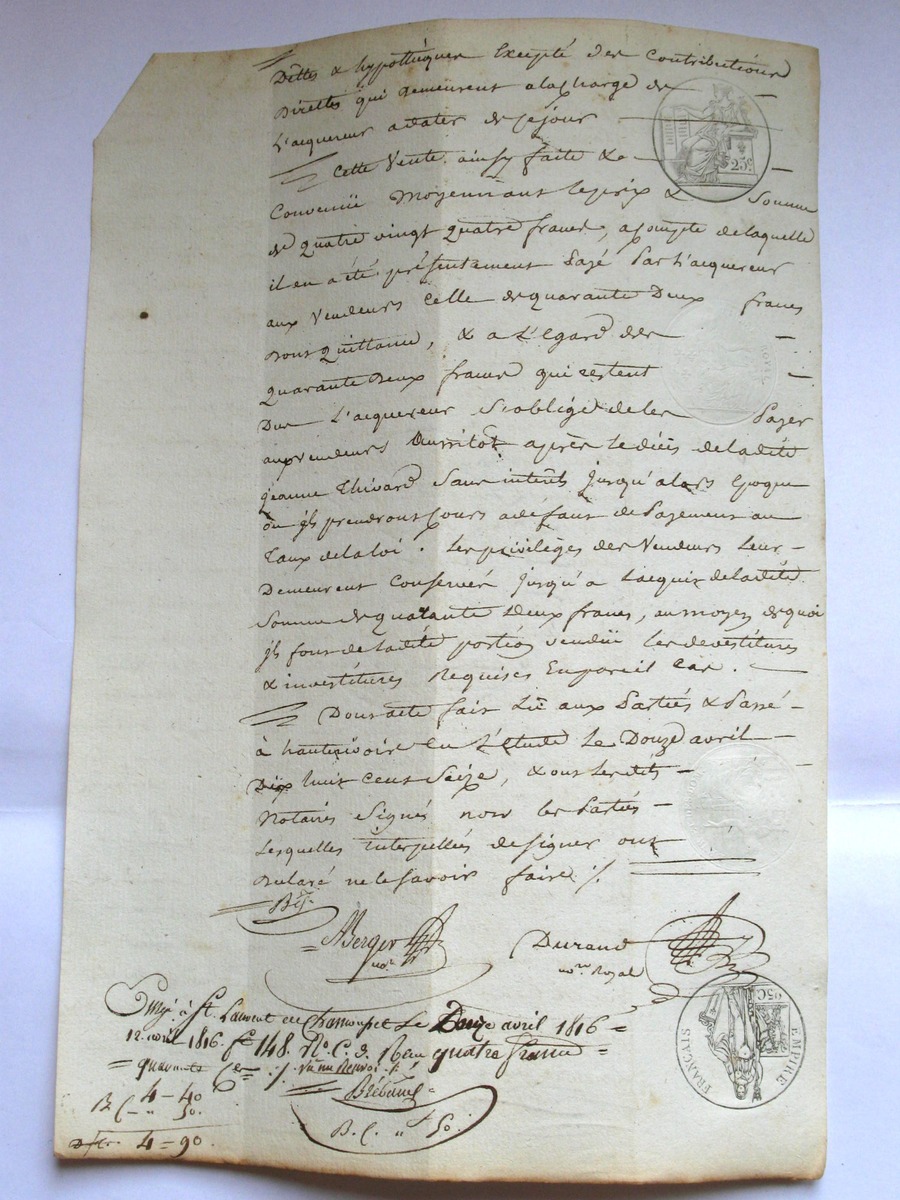 Dêttes & hypothèques Excepté des Contributions
Directtes qui demeurent a la charge de
L'acquereur a dater de ce jour
Cette Vente ainsy faite &
Convenüe Moyennant le prix & Somme
de quatre vingt quatre francs, a compte de laquelle
il en a été présentement Payé Par L'acquereur
aux Vendeurs Celle de quarante Deux francs
Dont quittance, & a L'Egard des
quarante deux francs qui restent
Dus L'acquereur S'oblige de les Payer
aux vendeurs aussitot après le décès de la dité
jeanne Thivard Sans intérêts jusqu'alors Epoque
où ils prendront Cours a défaut de Payement au
Taux de la loi. Les privilèges des Vendeurs Leur
Demeurent Conservés jusqu'a L'acquis de la dité
Somme de quarante Deux francs, au moyen de quoi
ils font de la dité portion vendüe les devestitures
& investitures Requises En pareil Cas.
Dont acte fait Lû aux Partiés & Passé
à hauterivoire En L'Etude Le Douze avril
Dix huit Cent Seize, & ont Lesdits
Notaires Signés non les Partiés
Lesquelles interpellées de signer ont
Déclaré ne le Savoir faire ./.
Berger
nre
Durand
nre Royal
25 c
Engé à St Laurent de Chamousset Le Douze avril 1816
12 avril 1816. fo 148. Ro. C. 3. Reçu quatre francs
quarante Cmes ./.
4 - 40
R. C. - " 50.
4 = 90.
B. C. " f 50.
EMPIRE
FRANÇAIS
25 C